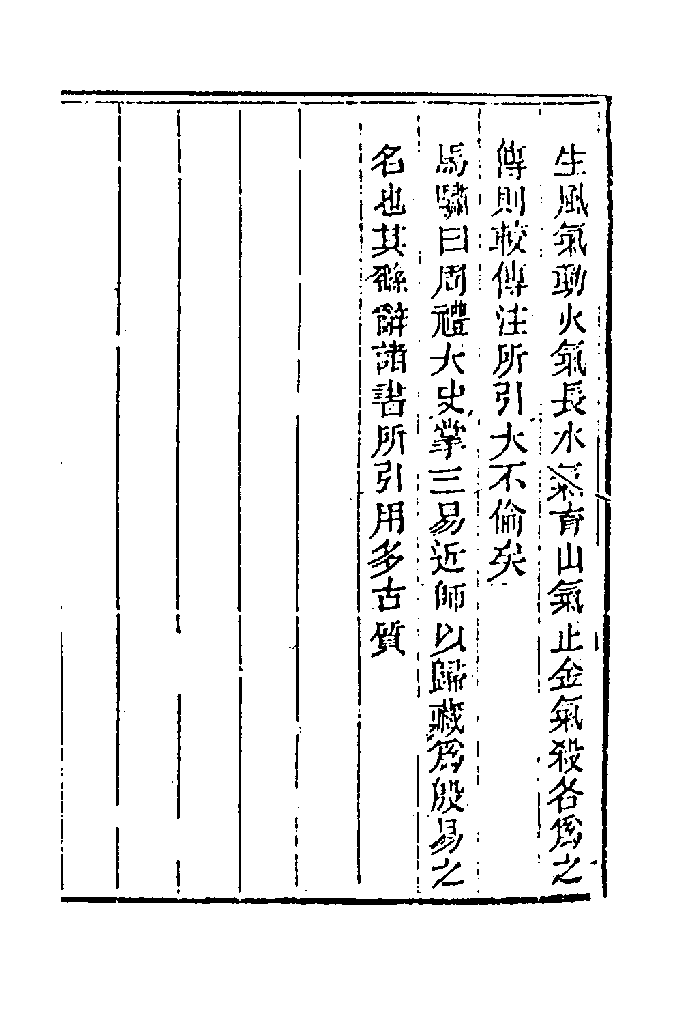 生風氣動火氣長水氣育山氣止金氣殺各爲之
傳則較傳注所引大不倫矣
馬驌曰周禮大史掌三易近師以歸藏爲殷易之
名也其繇辭諸書所引用多古質